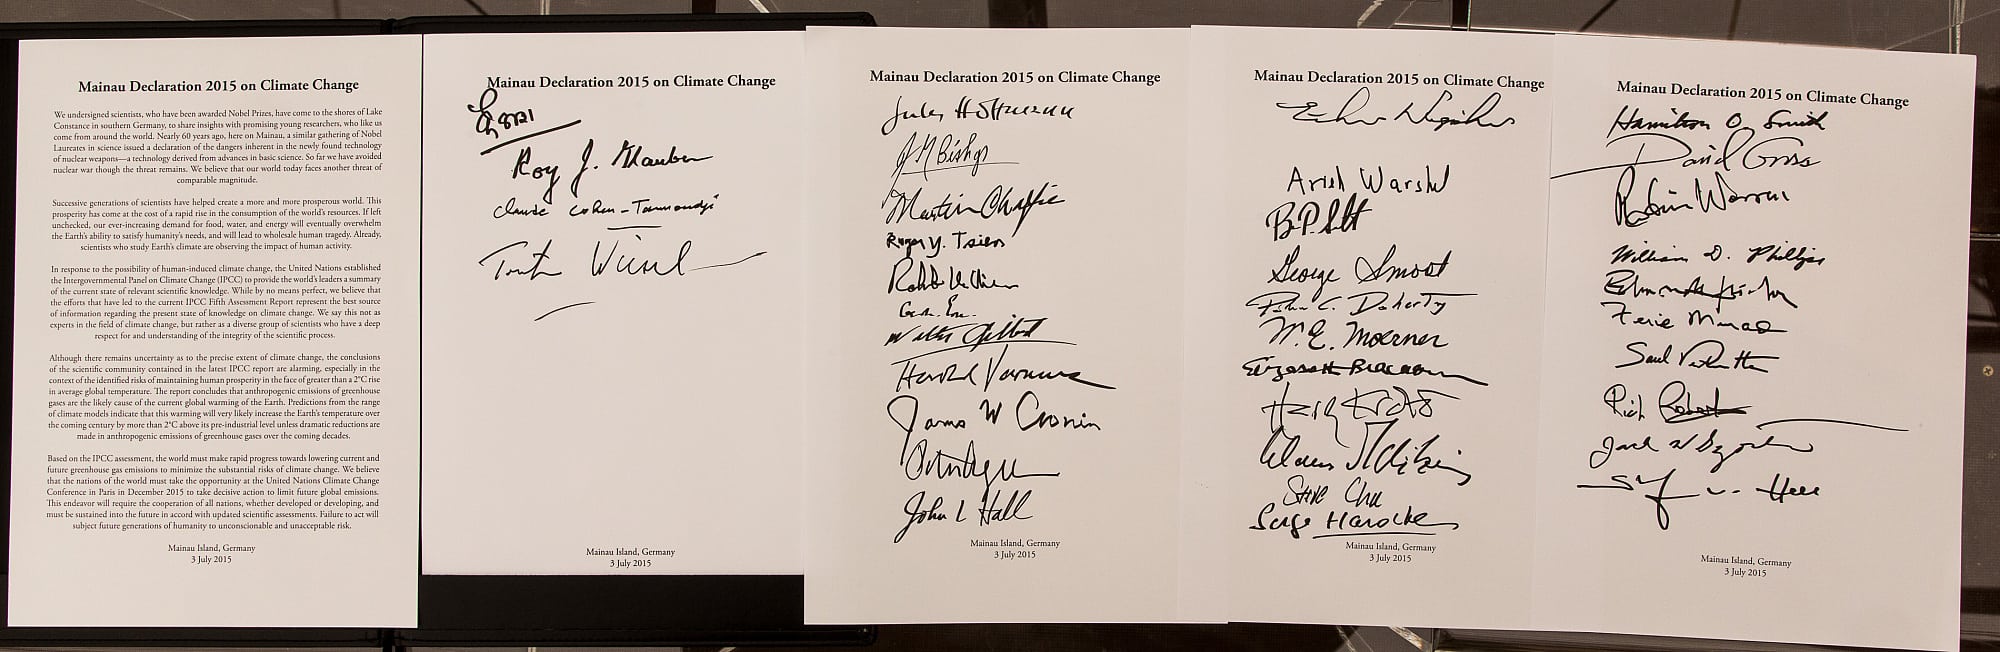 Mainau Declaration 2015 on Climate Change
We undersigned scientists, who have been awarded Nobel Prizes, have come to the shores of Lake
Constance in southern Germany, to share insights with promising young researchers, who like us
come from around the world. Nearly 60 years ago, here on Mainau, a similar gathering of Nobel
Laureates in science issued a declaration of the dangers inherent in the newly found technology
of nuclear weapons—a technology derived from advances in basic science. So far we have avoided
nuclear war though the threat remains. We believe that our world today faces another threat of
comparable magnitude.
Successive generations of scientists have helped create a more and more prosperous world. This
prosperity has come at the cost of a rapid rise in the consumption of the world's resources. If left
unchecked, our ever-increasing demand for food, water, and energy will eventually overwhelm
the Earth's ability to satisfy humanity's needs, and will lead to wholesale human tragedy. Already,
scientists who study Earth's climate are observing the impact of human activity.
In response to the possibility of human-induced climate change, the United Nations established
the Intergovernmental Panel on Climate Change (IPCC) to provide the world's leaders a summary
of the current state of relevant scientific knowledge. While by no means perfect, we believe that
the efforts that have led to the current IPCC Fifth Assessment Report represent the best source
of information regarding the present state of knowledge on climate change. We say this not as
experts in the field of climate change, but rather as a diverse group of scientists who have a deep
respect for and understanding of the integrity of the scientific process.
Although there remains uncertainty as to the precise extent of climate change, the conclusions
of the scientific community contained in the latest IPCC report are alarming, especially in the
context of the identified risks of maintaining human prosperity in the face of greater than a 2°C rise
in average global temperature. The report concludes that anthropogenic emissions of greenhouse
gases are the likely cause of the current global warming of the Earth. Predictions from the range
of climate models indicate that this warming will very likely increase the Earth's temperature over
the coming century by more than 2°C above its pre-industrial level unless dramatic reductions are
made in anthropogenic emissions of greenhouse gases over the coming decades.
Based on the IPCC assessment, the world must make rapid progress towards lowering current and
future greenhouse gas emissions to minimize the substantial risks of climate change. We believe
that the nations of the world must take the opportunity at the United Nations Climate Change
Conference in Paris in December 2015 to take decisive action to limit future global emissions.
This endeavor will require the cooperation of all nations, whether developed or developing, and
must be sustained into the future in accord with updated scientific assessments. Failure to act will
subject future generations of humanity to unconscionable and unacceptable risk.
Mainau Island, Germany
3 July 2015
Mainau Declaration 2015 on Climate Change
Roy J. Glauber
Claude Cohen-Tannoudji
Mainau Island, Germany
3 July 2015
Mainau Declaration 2015 on Climate Change
Jules Hoffmann
J M Bishop
Martin Chalfie
Roger Y. Tsien
Walter Gilbert
Harold Varmus
James W Cronin
John L Hall
Mainau Island, Germany
3 July 2015
Mainau Declaration 2015 on Climate Change
Arieh Warshel
George Smoot
Peter C. Doherty
W. E. Moerner
Elizabeth Blackburn
Steve Chu
Serge Haroche
Mainau Island, Germany
3 July 2015
Mainau Declaration 2015 on Climate Change
Hamilton O. Smith
David Gross
Robin Warren
William D. Phillips
Ferid Murad
Saul Perlmutter
Rich Roberts
Mainau Island, Germany
3 July 2015